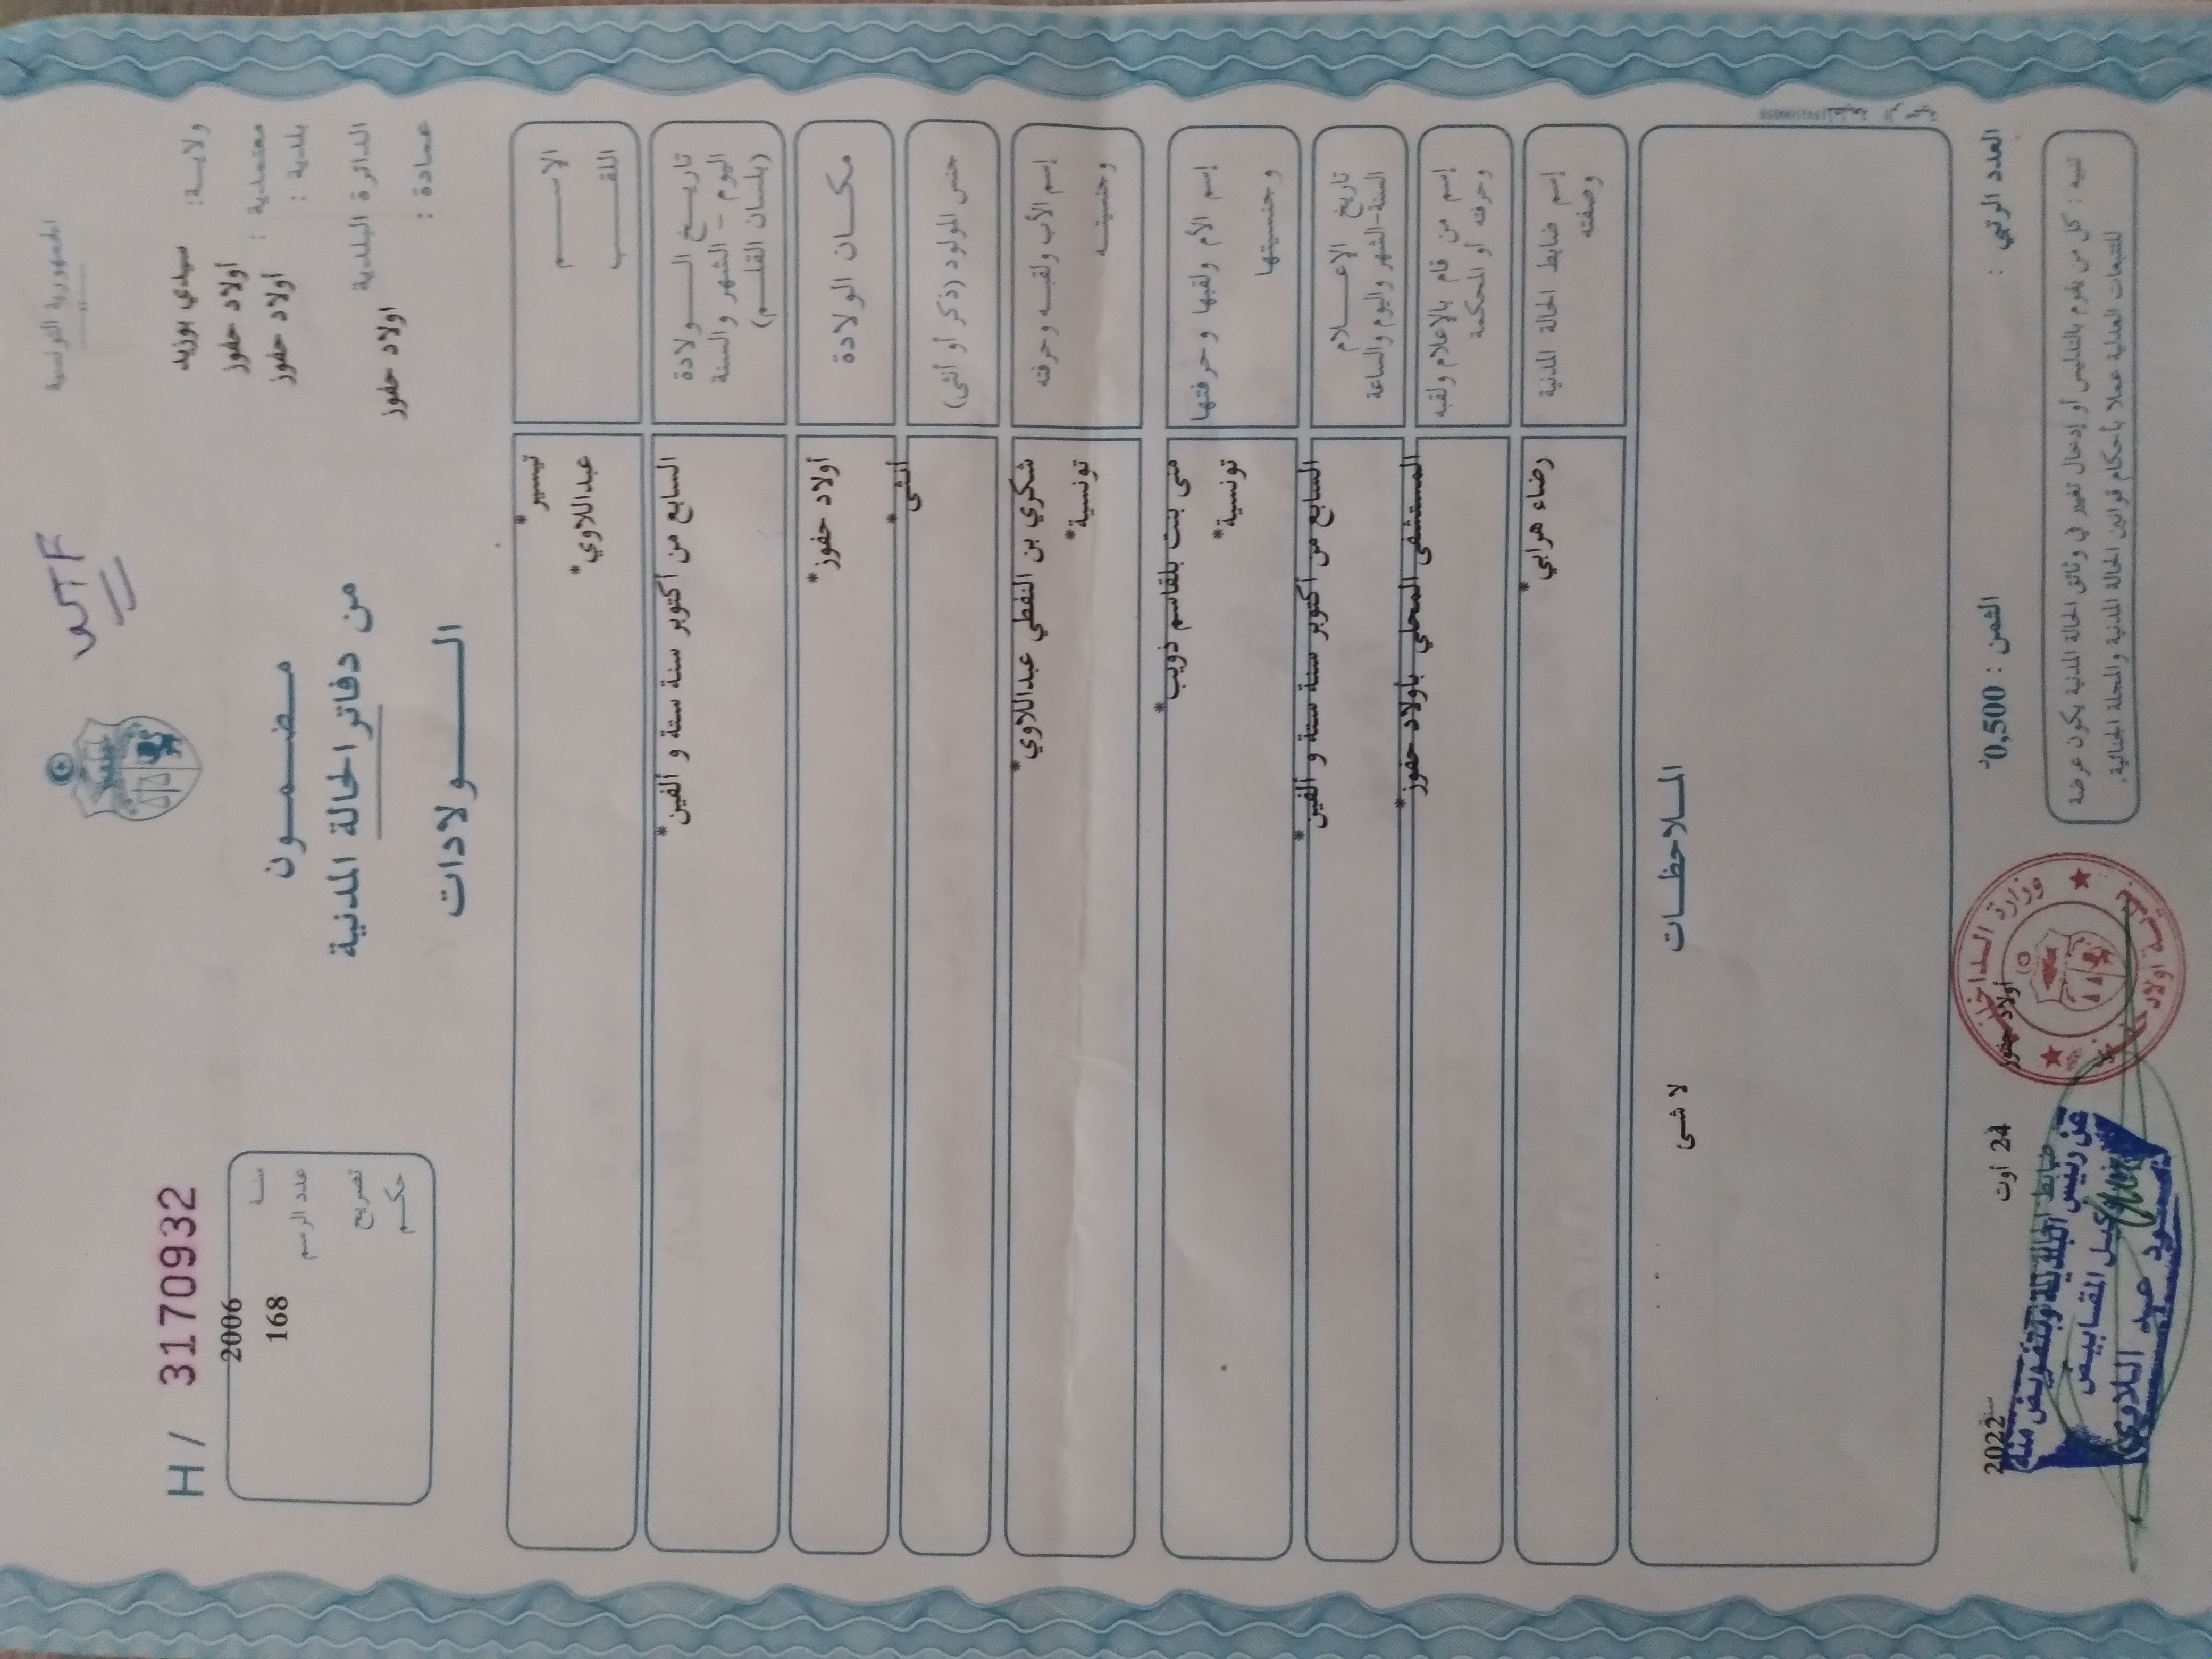 الجمهورية التونسية
WTF
H / 3170932
ولاية: سيدي بوزيد
معتمدية : أولاد حفوز
بلدية : أولاد حفوز
الدائرة البلدية
اولاد حفوز
عمادة :
مضمون
من دفاتر الحالة المدنية
الولادات
سنة 2006
عدد الرسم 168
تصريح
حكم
الاسم تيسير*
اللقب عبداللاوي*
تاريخ الولادة السابع من أكتوبر سنة ستة و ألفين*
اليوم - الشهر والسنة
(بلسان القلم)
مكان الولادة أولاد حفوز*
جنس المولود (ذكر أو أنثى) أنثى*
إسم الأب ولقبه وحرفته شكري بن النفطي عبداللاوي*
وجنسيته تونسية*
إسم الأم ولقبها وحرفتها منى بنت بلقاسم ذويب*
وجنسيتها تونسية*
تاريخ الإعلام السابع من أكتوبر سنة ستة و ألفين*
السنة-الشهر واليوم والساعة
إسم من قام بالإعلام ولقبه المستشفى المحلي بأولاد حفوز*
وحرفته أو المحكمة
إسم ضابط الحالة المدنية رضاء هرابي*
وصفته
الملاحظات
لا شئ
العدد الرتبي :
الثمن : 0,500د
أولاد حفوز 24 أوت سنة 2022
تنبيه : كل من يقوم بالتدليس أو إدخال تغيير في وثائق الحالة المدنية يكون عرضة
للتتبعات العدلية عملا بأحكام قوانين الحالة المدنية والمجلة الجنائية.
وزارة الداخلية
عن رئيس البلدية وبتفويض منه
وكيل المقابيض
عبد اللاوي